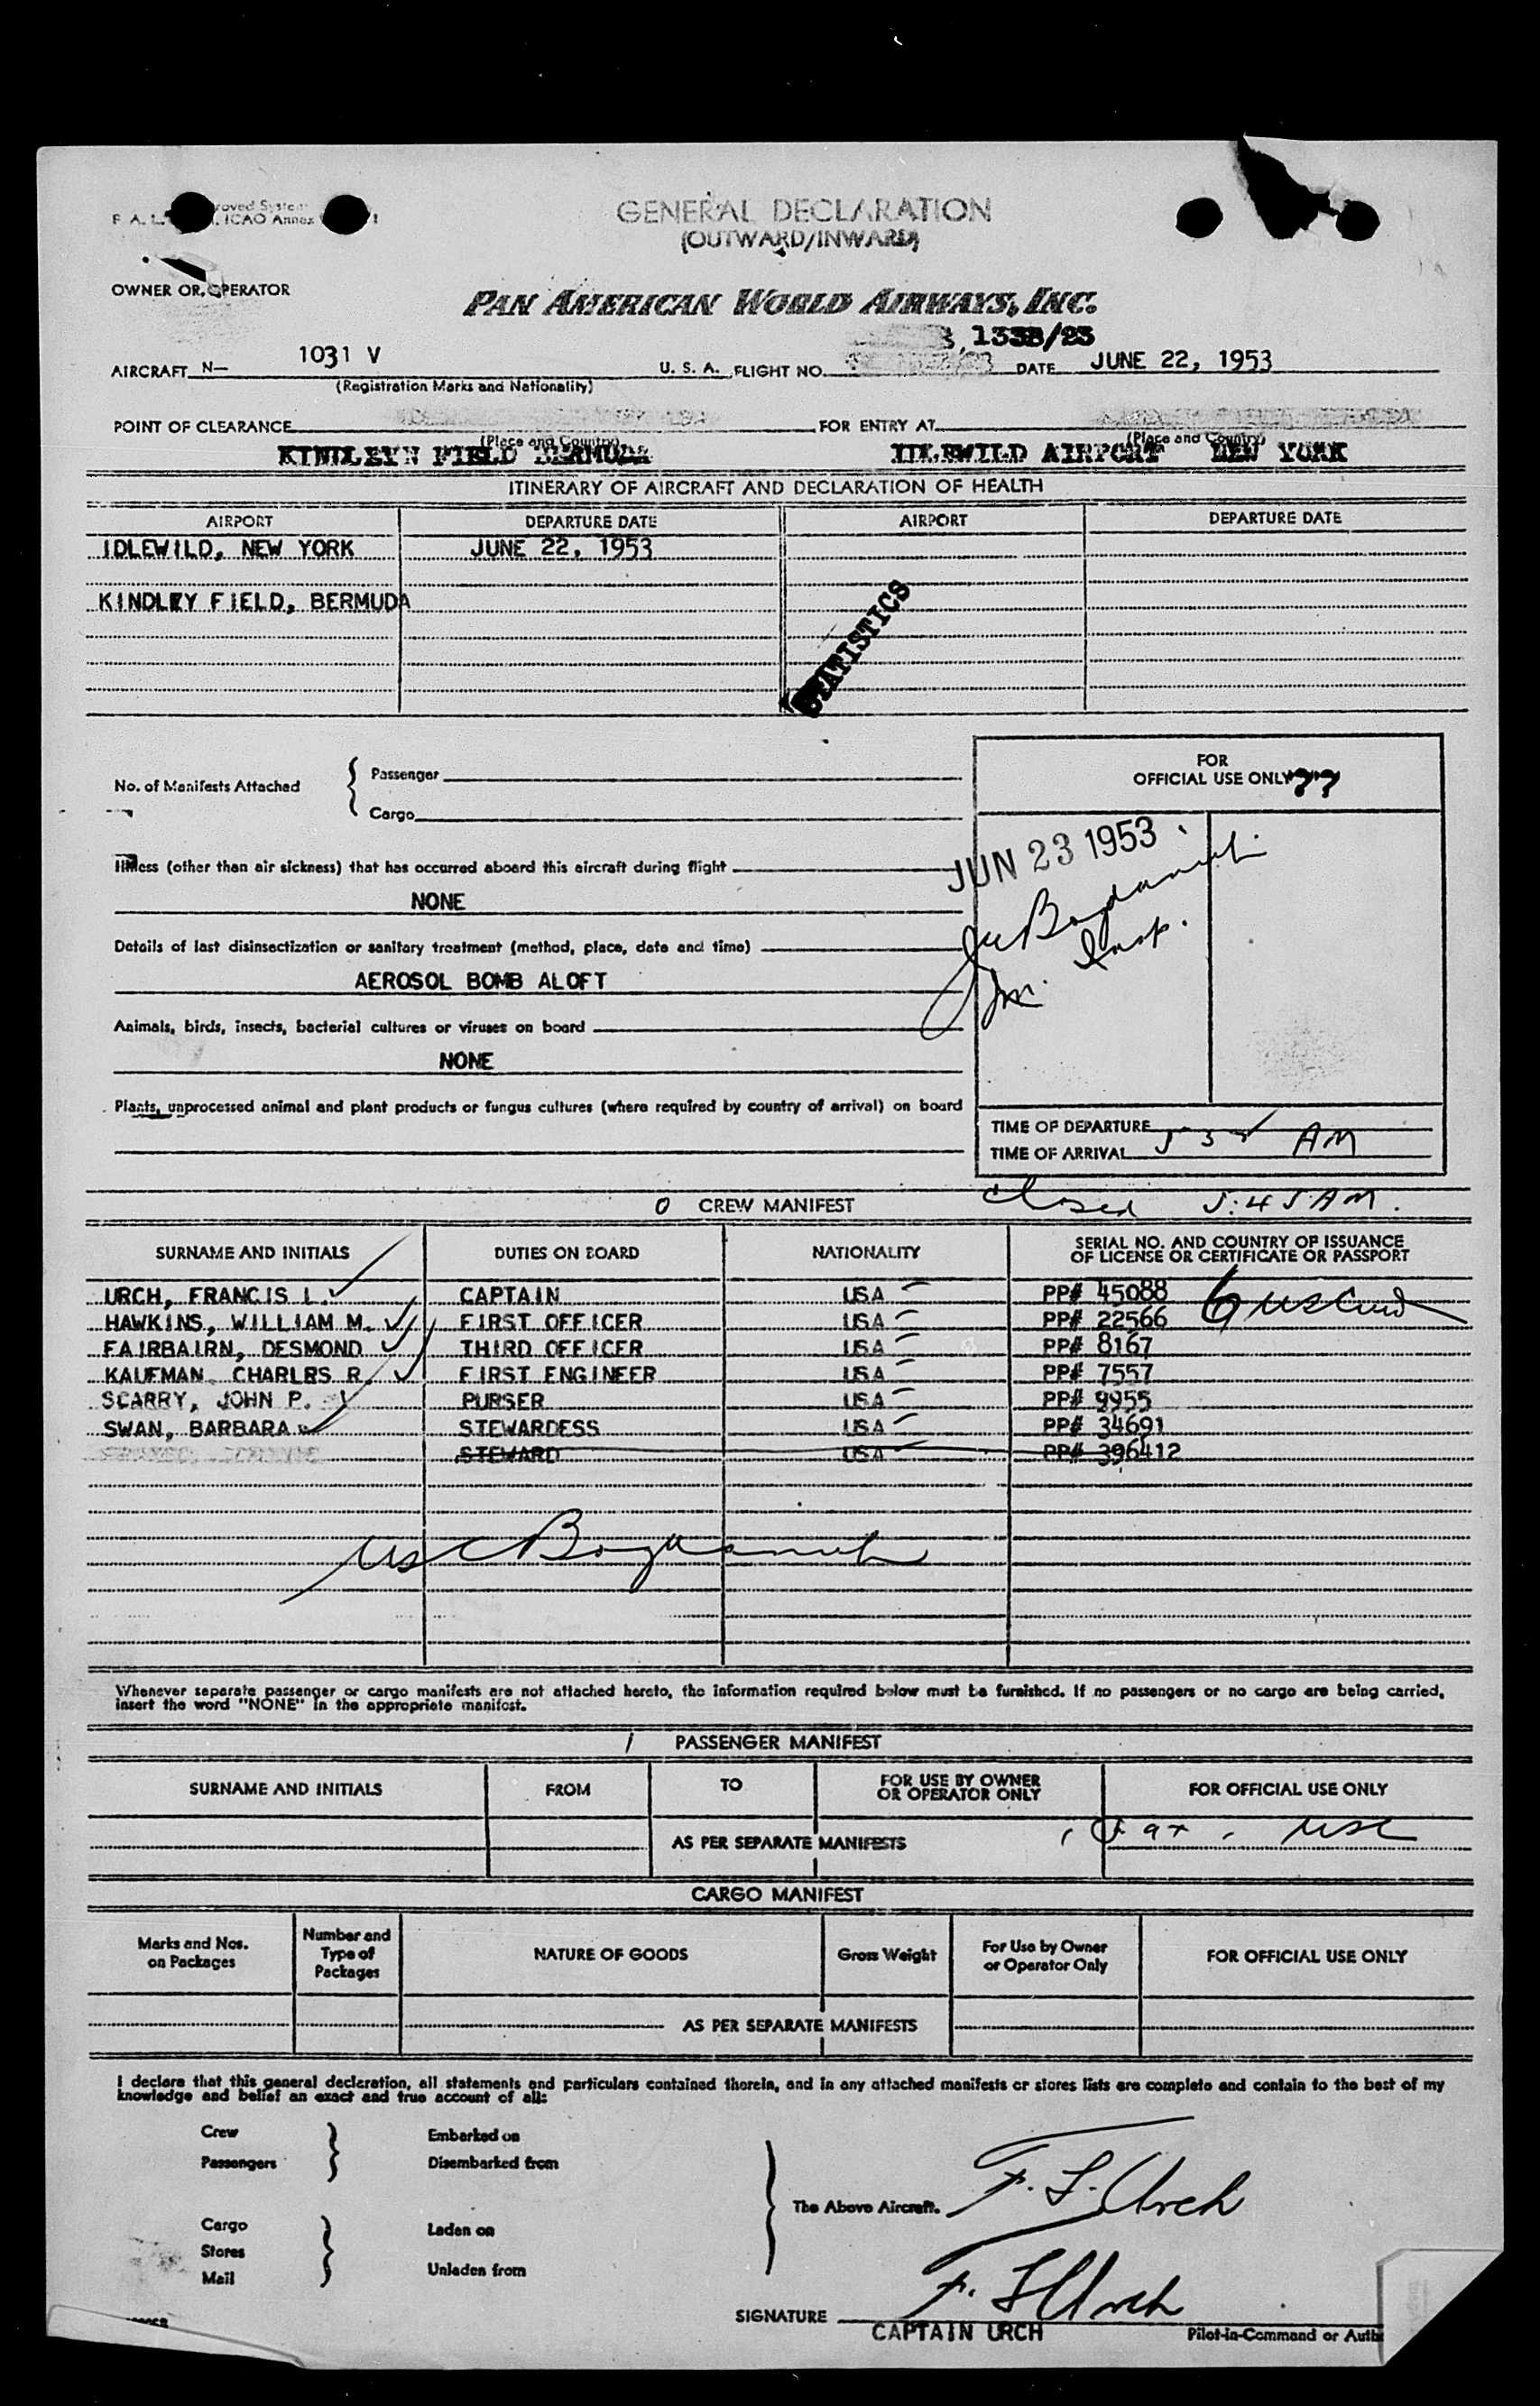 GENERAL DECLARATION
(OUTWARD/INWARD)
F. A. L. roved System
ICAO Annex
OWNER OR OPERATOR
PAN AMERICAN WORLD AIRWAYS, INC.
1338/23
AIRCRAFT N— 1031 V U. S. A. FLIGHT NO. DATE JUNE 22, 1953
(Registration Marks and Nationality)
POINT OF CLEARANCE FOR ENTRY AT
(Place and Country) (Place and Country)
KINDLEY'N FIELD BERMUDA IDLEWILD AIRPORT NEW YORK
ITINERARY OF AIRCRAFT AND DECLARATION OF HEALTH
AIRPORT DEPARTURE DATE AIRPORT DEPARTURE DATE
IDLEWILD, NEW YORK JUNE 22, 1953
KINDLEY FIELD, BERMUDA
STATISTICS
No. of Manifests Attached { Passenger
Cargo
FOR
OFFICIAL USE ONLY 77
JUN 23 1953
Insp.
Illness (other than air sickness) that has occurred aboard this aircraft during flight
NONE
Details of last disinsectization or sanitary treatment (method, place, date and time)
AEROSOL BOMB ALOFT
Animals, birds, insects, bacterial cultures or viruses on board
NONE
Plants, unprocessed animal and plant products or fungus cultures (where required by country of arrival) on board
TIME OF DEPARTURE
TIME OF ARRIVAL 535 AM
closed 5:45 AM.
0 CREW MANIFEST
SURNAME AND INITIALS DUTIES ON BOARD NATIONALITY SERIAL NO. AND COUNTRY OF ISSUANCE
OF LICENSE OR CERTIFICATE OR PASSPORT
URCH, FRANCIS L. CAPTAIN USA PP# 45088
HAWKINS, WILLIAM M. FIRST OFFICER USA PP# 22566 6
FAIRBAIRN, DESMOND THIRD OFFICER USA PP# 8167
KAUFMAN, CHARLES R. FIRST ENGINEER USA PP# 7557
SCARRY, JOHN P. PURSER USA PP# 9955
SWAN, BARBARA STEWARDESS USA PP# 34691
STEWARD USA PP# 396412
Whenever separate passenger or cargo manifests are not attached hereto, the information required below must be furnished. If no passengers or no cargo are being carried,
insert the word "NONE" in the appropriate manifest.
1 PASSENGER MANIFEST
SURNAME AND INITIALS FROM TO FOR USE BY OWNER
OR OPERATOR ONLY FOR OFFICIAL USE ONLY
AS PER SEPARATE MANIFESTS
1 Pax - USC
CARGO MANIFEST
Marks and Nos.
on Packages Number and
Type of
Packages NATURE OF GOODS Gross Weight For Use by Owner
or Operator Only FOR OFFICIAL USE ONLY
AS PER SEPARATE MANIFESTS
I declare that this general declaration, all statements and particulars contained therein, and in any attached manifests or stores lists are complete and contain to the best of my
knowledge and belief an exact and true account of all:
Crew Embarked on
Passengers Disembarked from
The Above Aircraft. F. L. Urch
Cargo Laden on
Stores
Mail Unladen from
SIGNATURE F. L. Urch
CAPTAIN URCH Pilot-in-Command or Auth